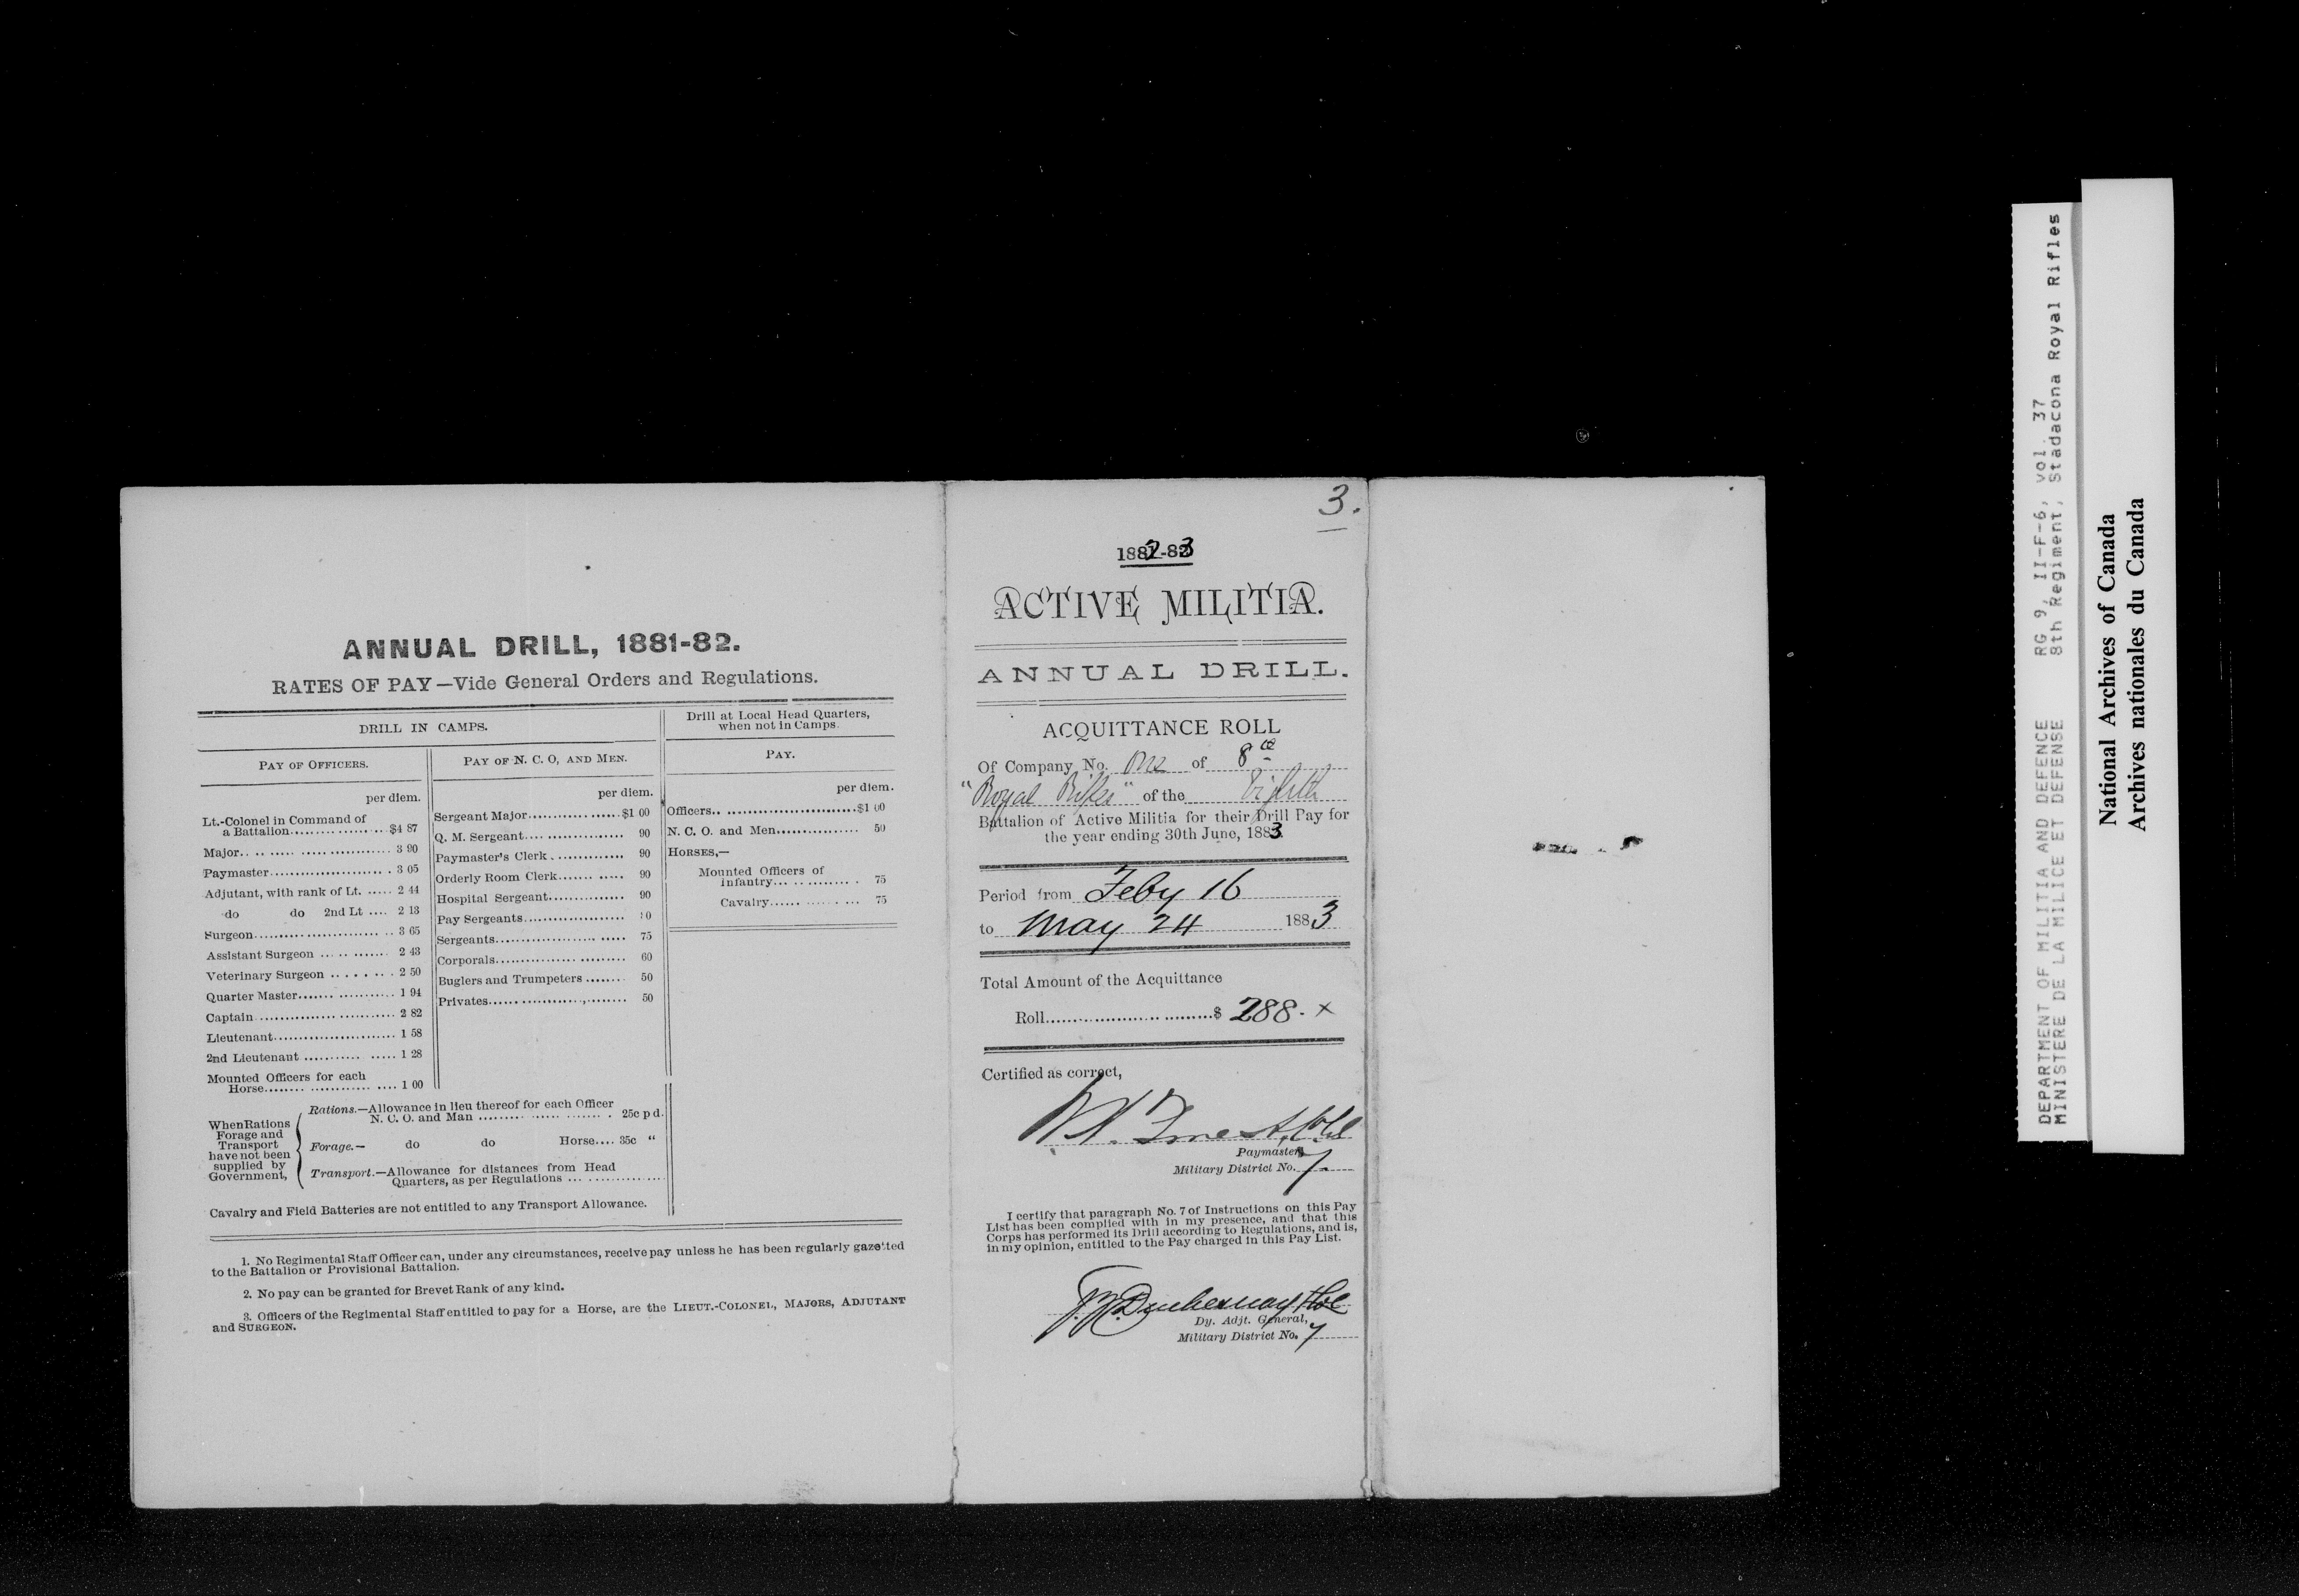 ANNUAL DRILL, 1881-82.
RATES OF PAY—Vide General Orders and Regulations.
DRILL IN CAMPS.
PAY OF OFFICERS.
per diem.
Lt.-Colonel in Command of
a Battalion $4 87
Major 3 90
Paymaster 3 05
Adjutant, with rank of Lt. 2 44
do do 2nd Lt 2 13
Surgeon 3 65
Assistant Surgeon 2 43
Veterinary Surgeon 2 50
Quarter Master 1 94
Captain 2 82
Lieutenant 1 58
2nd Lieutenant 1 28
Mounted Officers for each
Horse 1 00
PAY OF N. C. O, AND MEN.
per diem.
Sergeant Major $1 00
Q. M. Sergeant 90
Paymaster's Clerk 90
Orderly Room Clerk 90
Hospital Sergeant 90
Pay Sergeants
Sergeants 75
Corporals 60
Buglers and Trumpeters 50
Privates 50
Drill at Local Head Quarters,
when not in Camps.
PAY.
per diem.
Officers $1 00
N. C. O. and Men 50
HORSES,—
Mounted Officers of
Infantry 75
Cavalry 75
When Rations
Forage and
Transport
have not been
supplied by
Government,
Rations.—Allowance in lieu thereof for each Officer
N. C. O. and Man 25c p d.
Forage.— do do Horse 35c "
Transport.—Allowance for distances from Head
Quarters, as per Regulations
Cavalry and Field Batteries are not entitled to any Transport Allowance.
1. No Regimental Staff Officer can, under any circumstances, receive pay unless he has been regularly gazetted
to the Battalion or Provisional Battalion.
2. No pay can be granted for Brevet Rank of any kind.
3. Officers of the Regimental Staff entitled to pay for a Horse, are the LIEUT.-COLONEL, MAJORS, ADJUTANT
and SURGEON.
3.
1882-83
ACTIVE MILITIA.
ANNUAL DRILL.
ACQUITTANCE ROLL
Of Company No. One of 8th
"Royal Rifles" of the Eighth
Battalion of Active Militia for their Drill Pay for
the year ending 30th June, 1883
Period from Feby 16
to May 24 1883
Total Amount of the Acquittance
Roll $ 288. x
Certified as correct,
Paymaster
Military District No. 7.
I certify that paragraph No. 7 of Instructions on this Pay
List has been complied with in my presence, and that this
Corps has performed its Drill according to Regulations, and is,
in my opinion, entitled to the Pay charged in this Pay List.
Duchesnay
Dy. Adjt. General,
Military District No. 7
DEPARTMENT OF MILITIA AND DEFENCE RG 9, II-F-6, vol. 37
MINISTERE DE LA MILICE ET DEFENSE 8th Regiment, Stadacona Royal Rifles
National Archives of Canada
Archives nationales du Canada